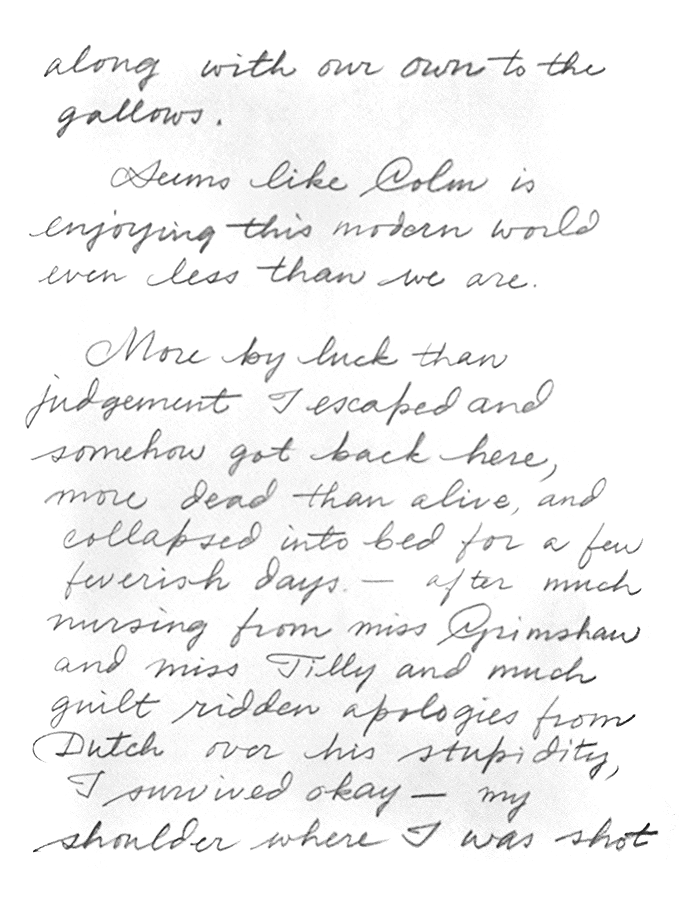 along with our own to the
gallows.
Seems like Colm is
enjoying this modern world
even less than we are.
More by luck than
judgement I escaped and
somehow got back here,
more dead than alive, and
collapsed into bed for a few
feverish days. — after much
nursing from miss Grimshaw
and miss Tilly and much
guilt ridden apologies from
Dutch over his stupidity,
I survived okay — my
shoulder where I was shot